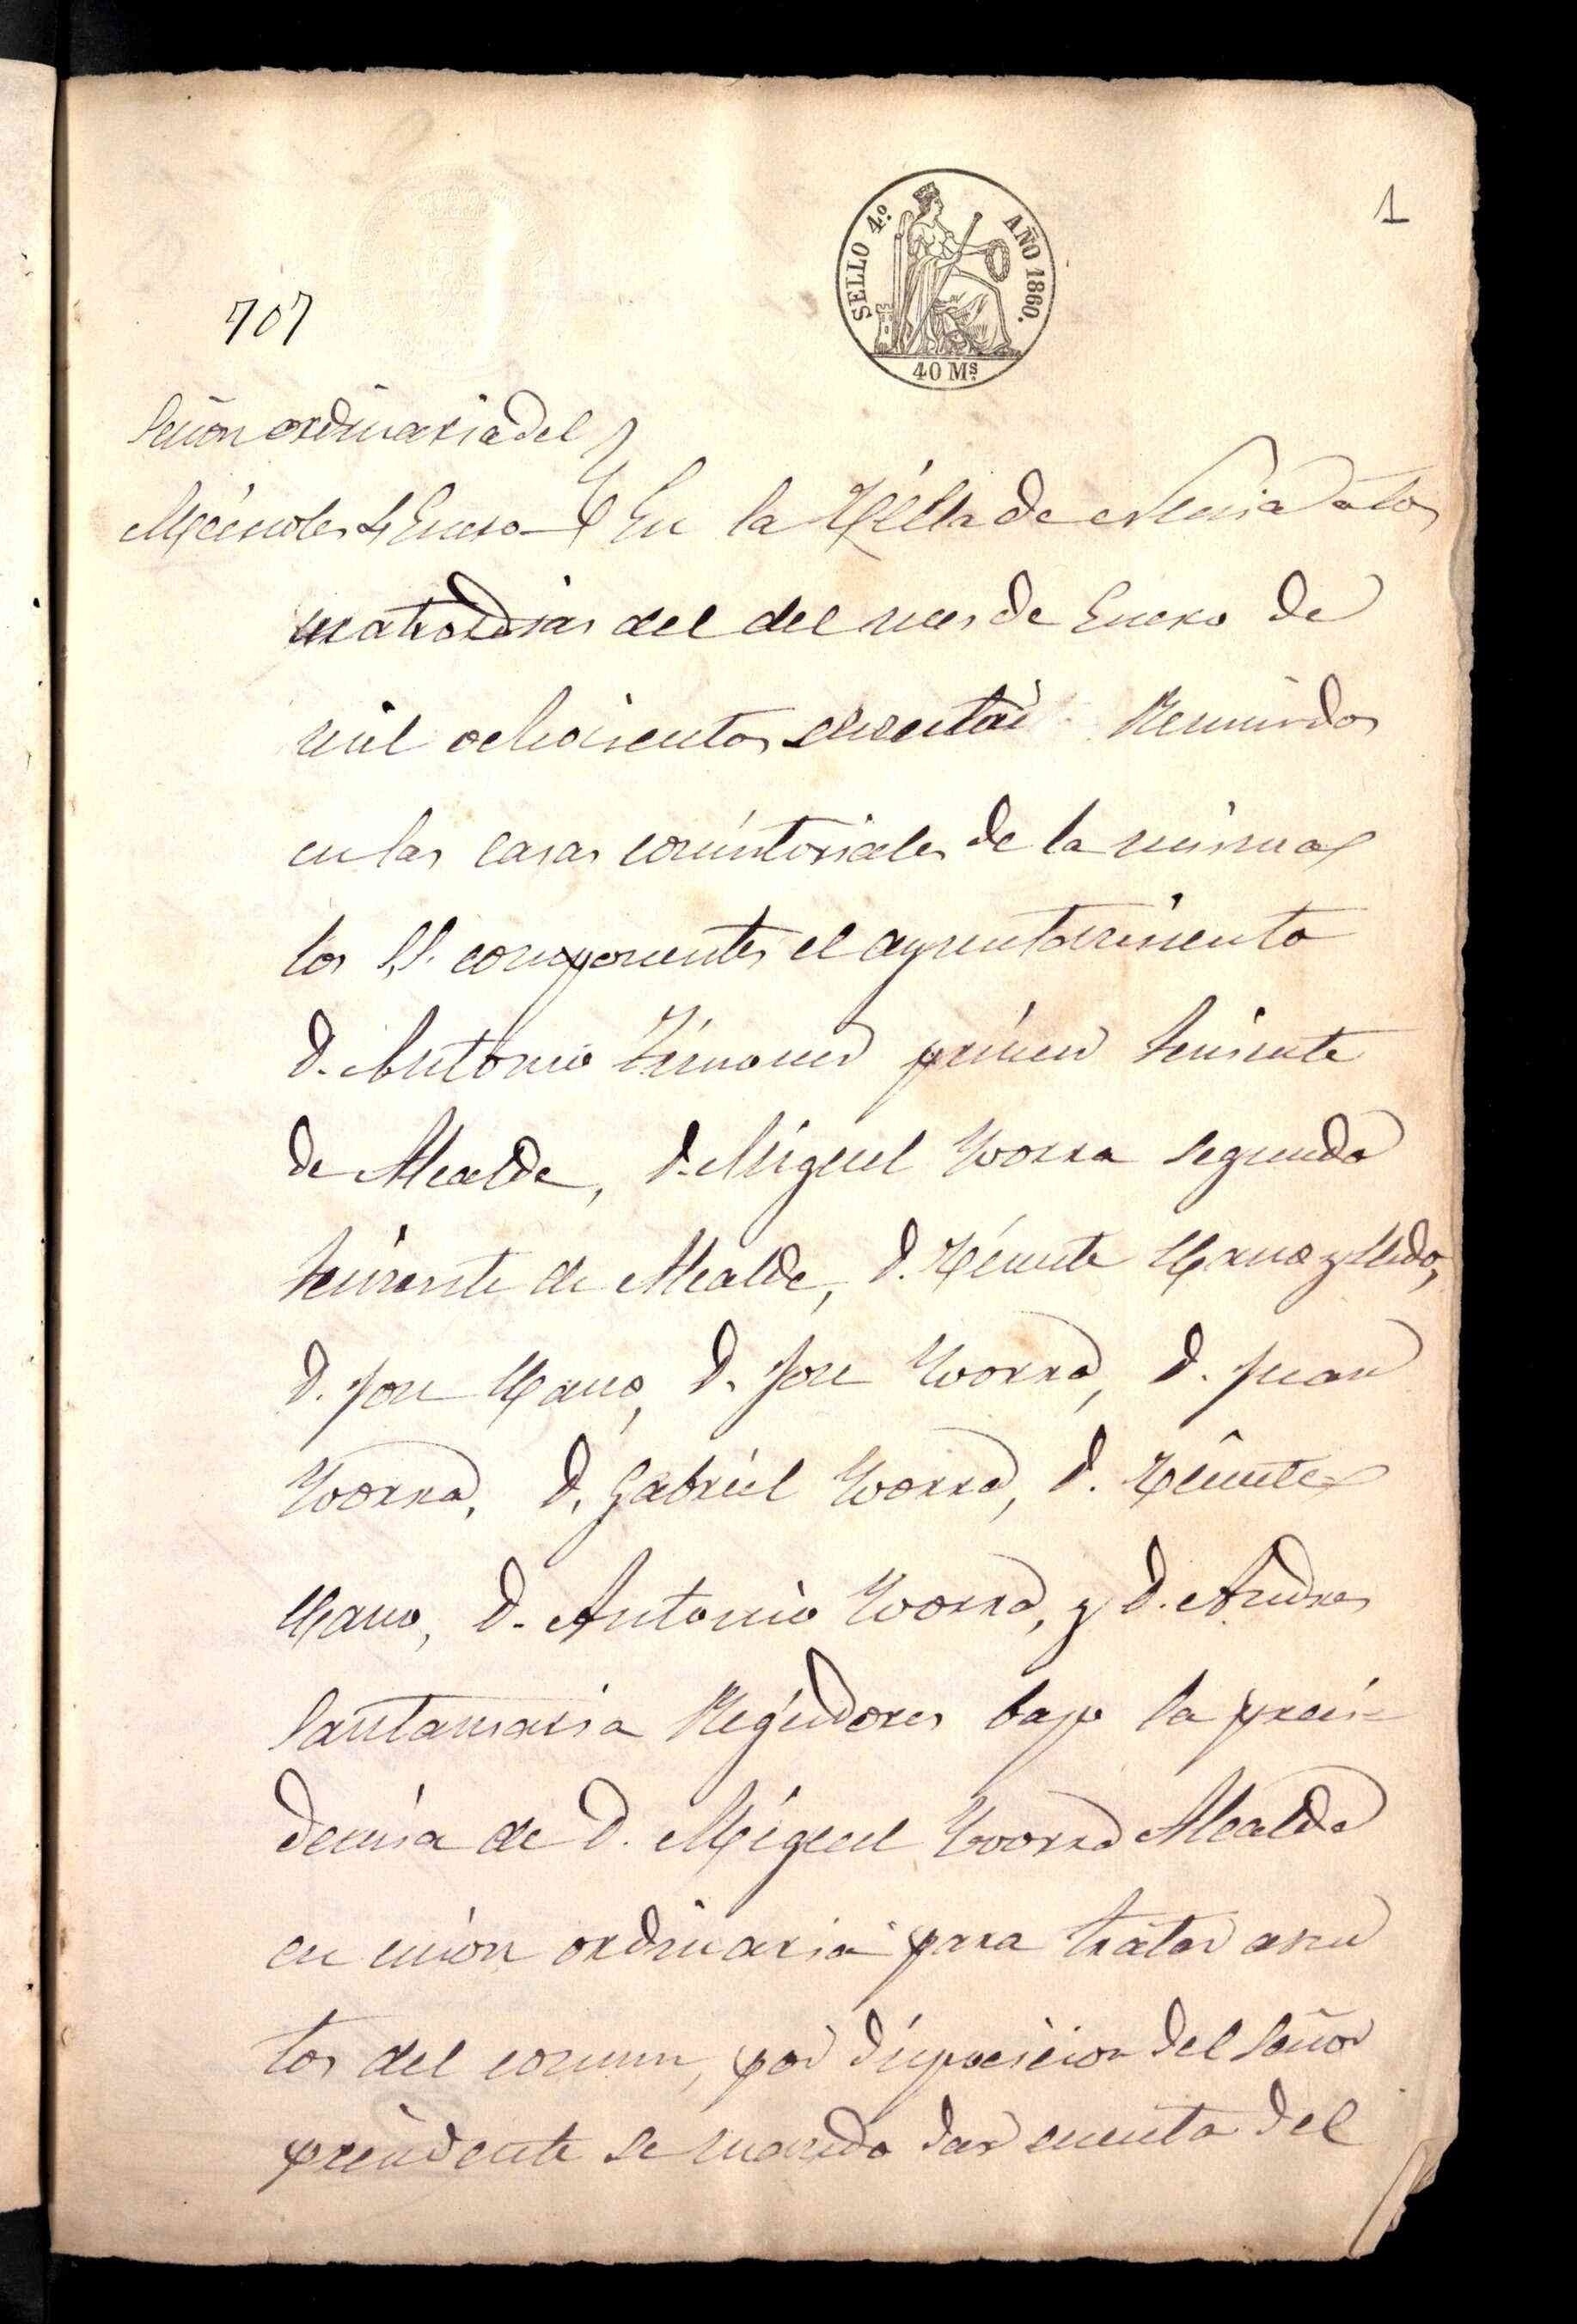 1
SELLO 4º. AÑO 1860.
40 Ms.
707
Sesion ordinaria del
Miércoles 4 Enero
En la Villa de a los
cuatro dias del del mes de Enero de
mil ochocientos sesenta: Reunidos
en las casas consistoriales de la misma
los S.S. componentes el ayuntamiento
D. Antonio primer teniente
de Alcalde, D. Miguel Yvorra segundo
teniente de Alcalde, D. Vicente Llano y
D. Jose Llano, D. Jose Yvorra, D. Juan
Yvorra, D. Gabriel Yvorra, D. Vicente
Llano, D. Antonio Yvorra, y D. Andres
Santamaria Regidores bajo la presi-
dencia de D. Miguel Yvorra Alcalde
en cecion ordinaria para tratar asun
tos del comun, por disposicion del Señor
presidente se mando dar cuenta del